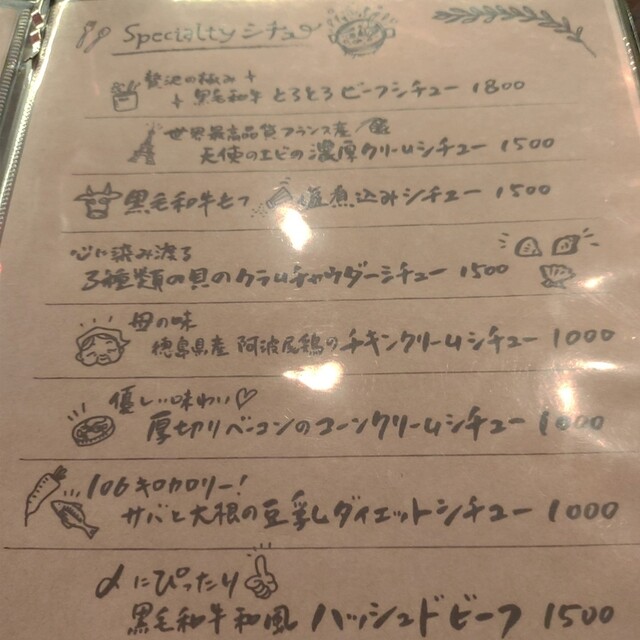 Specialty シチュー
贅沢の極み
黒毛和牛 とろとろ ビーフシチュー 1800
世界最高品質 フランス産
天使のエビの濃厚クリームシチュー 1500
黒毛和牛もつ 塩煮込みシチュー 1500
心に染み渡る
3種類の貝のクラムチャウダーシチュー 1500
母の味
徳島県産 阿波尾鶏のチキンクリームシチュー 1000
優しい味わい♡
厚切りベーコンのコーンクリームシチュー 1000
106キロカロリー!
サバと大根の豆乳ダイエットシチュー 1000
にぴったり
黒毛和牛和風 ハッシュドビーフ 1500